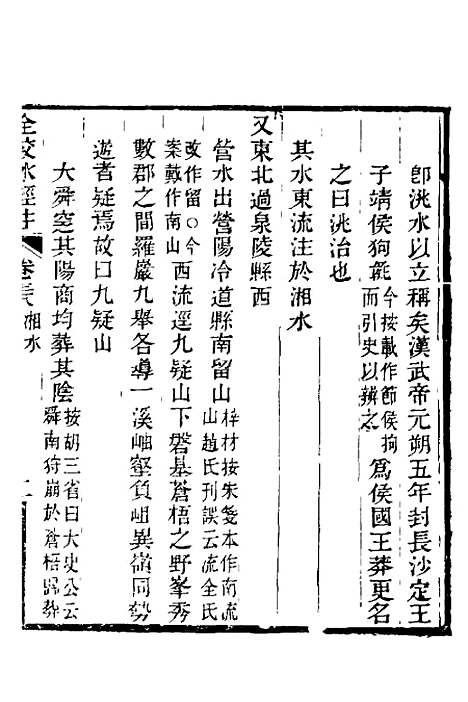 卽洮水以立稱矣漢武帝元朔五年封長沙定王
子靖侯狗彘今按戴作節侯拘而引史以辨之爲侯國王莽更名
之曰洮治也
其水東流注於湘水
又東北過泉陵縣西
營水出營陽泠道縣南留山梓材按朱箋本作南流山趙氏刊誤云流全氏
改作留○今案戴作南山西流逕九疑山下磐基蒼梧之野峯秀
數郡之間羅巖九舉各導一溪岫壑負岨異嶺同勢
遊者疑焉故曰九疑山
大舜窆其陽商均葬其陰按胡三省曰大史公云舜南狩崩於蒼梧歸葬
全校水經注 卷三八 湘水 二